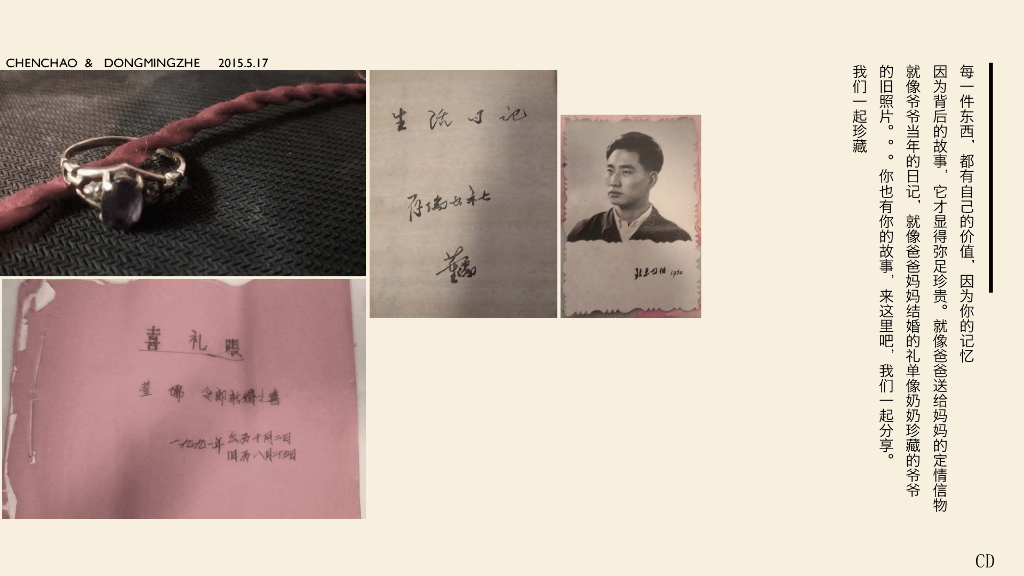 CHENCHAO & DONGMINGZHE 2015.5.17
生活日记
喜礼
令郎新婚之喜
一九九一年
公历十月二日
旧历八月廿四日
1960
每一件东西，都有自己的价值，因为你的记忆
因为背后的故事，它才显得弥足珍贵。就像爸爸送给妈妈的定情信物
就像爷爷当年的日记，就像爸爸妈妈结婚的礼单像奶奶珍藏的爷爷
的旧照片。。。你也有你的故事，来这里吧，我们一起分享。
我们一起珍藏
CD